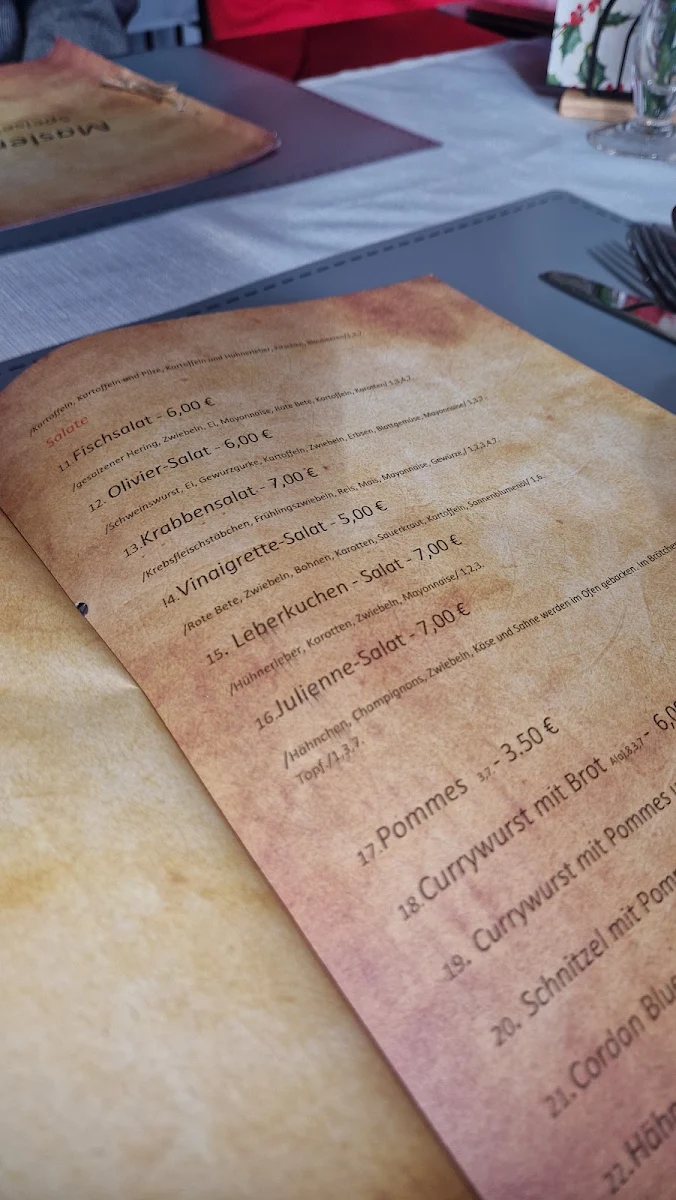 Masler
/Kartoffeln, Kartoffeln und Pilze, Kartoffeln und Hühnerleber,
salate
11.Fischsalat - 6,00 €
/gesalzener Hering, Zwiebeln, Ei, Mayonnaise, Rote Bete, Kartoffeln, Karotten/ 1,3,4,7.
12. Olivier-Salat - 6,00 €
/Schweinswurst, Ei, Gewürzgurke, Kartoffeln, Zwiebeln, Erbsen, Blattgemüse, Mayonnaise/ 1,3,7.
13.Krabbensalat - 7,00 €
/Krebsfleischstäbchen, Frühlingszwiebeln, Reis, Mais, Mayonnaise, Gewürze,/ 1,2,3,4,7.
14.Vinaigrette-Salat - 5,00 €
/Rote Bete, Zwiebeln, Bohnen, Karotten, Sauerkraut, Kartoffeln, Sonnenblumenöl/ 1,6.
15. Leberkuchen - Salat - 7,00 €
/Hühnerleber, Karotten, Zwiebeln, Mayonnaise/ 1,2,3.
16.Julienne-Salat - 7,00 €
/Hähnchen, Champignons, Zwiebeln, Käse und Sahne werden im Ofen gebacken. im Brötchen
Topf./1,3,7.
17.Pommes 3,7 - 3.50 €
18.Currywurst mit Brot - 6,0
19. Currywurst mit Pommes u
20. Schnitzel mit Pomm
21. Cordon Blue
22. Hähn